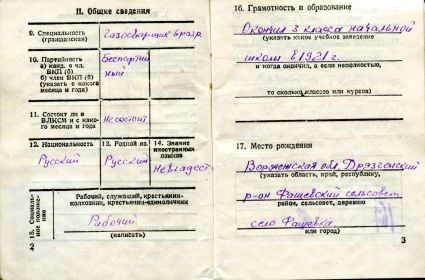 II. Общие сведения
9. Специальность
(гражданская)
Газосварщик 6 разр.
10. Партийность
а) канд. в чл.
ВКП (б)
б) член ВКП (б)
(указать с какого
месяца и года)
Беспартий
ный
11. Состоит ли в
ВЛКСМ и с какого
месяца и года
Не состоит
12. Национальность
Русский
13. Родной яз.
Русский
14. Знание
иностранных
языков
Не владеет
15. Социальное
положение
Рабочий, служащий, крестьянин-
колхозник, крестьянин-единоличник
Рабочий
(написать)
2
16. Грамотность и образование
Окончил 3 класса начальной
(указать какое учебное заведение
школы в 1921 г.
и когда окончил, а если неполностью,
то сколько классов или курсов)
17. Место рождения
Воронежская обл. Дрязгенский
(указать область, край, республику,
р-он Фащевский сельсовет
район, сельсовет, деревню
село Фащевка
или город)
3